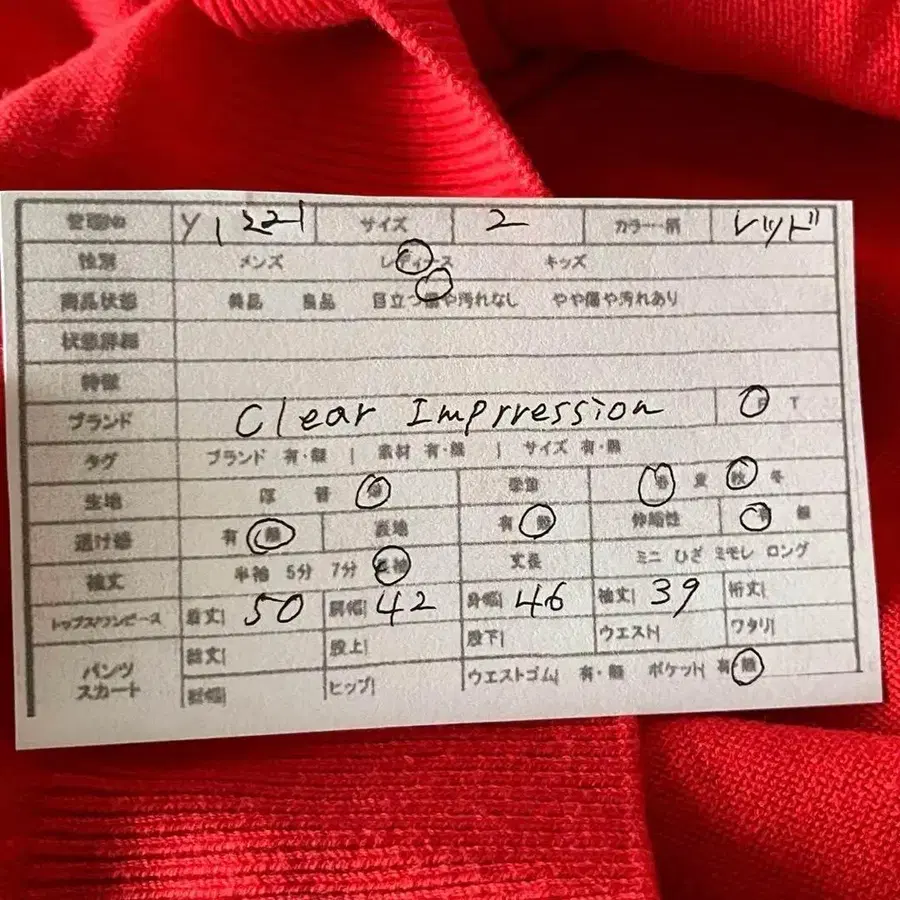 管理No Y1221 サイズ 2 カラー・柄 レッド
性別 メンズ レディース キッズ
商品状態 美品 良品 目立つ傷や汚れなし やや傷や汚れあり
状態詳細
特徴
ブランド Clear Imprression P T
タグ ブランド 有・無 | 素材 有・無 | サイズ 有・無
生地 厚 普 薄 季節 春 夏 秋 冬
透け感 有 無 裏地 有 無 伸縮性 有 無
袖丈 半袖 5分 7分 長袖 丈長 ミニ ひざ ミモレ ロング
トップス/ワンピース 着丈| 50 肩幅| 42 身幅| 46 袖丈| 39 裄丈|
パンツ スカート 総丈| 股上| 股下| ウエスト| ワタリ|
裾幅| ヒップ| ウエストゴム| 有・無 ポケット| 有・無